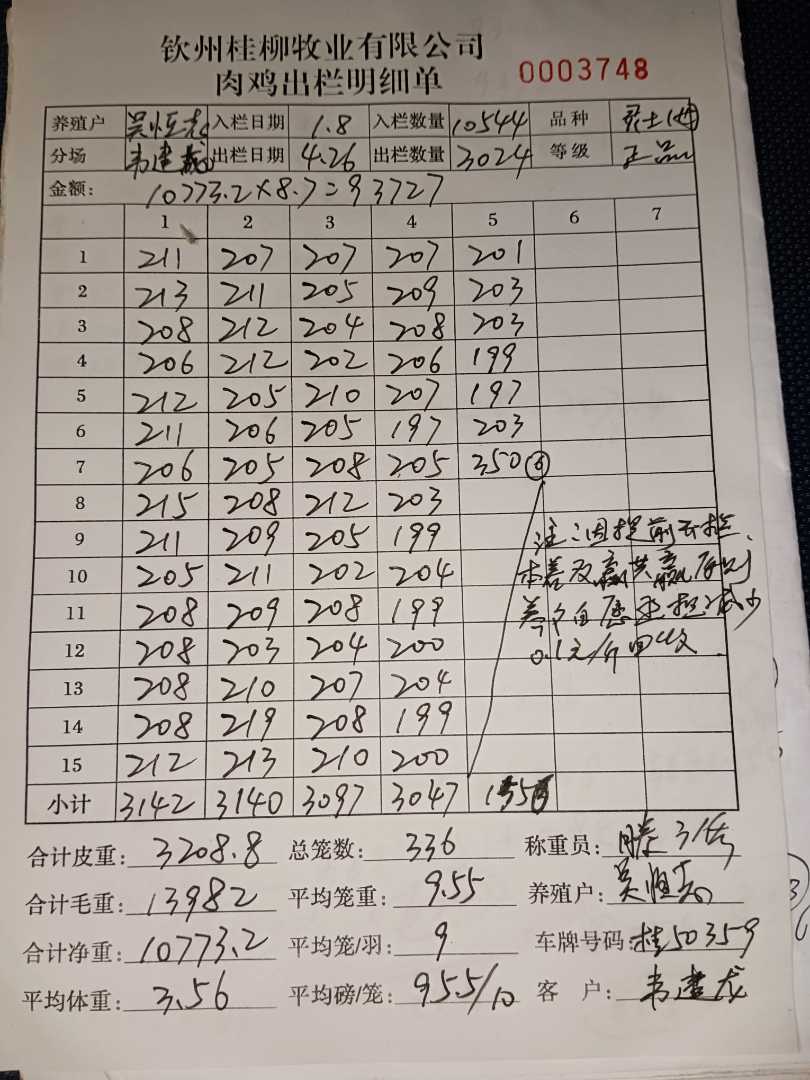 钦州桂柳牧业有限公司
肉鸡出栏明细单 0003748
养殖户 吴恒志 入栏日期 1.8 入栏数量 10544 品种
分场 韦建龙 出栏日期 4.26 出栏数量 3024 等级 正品
金额: 10773.2×8.7=93727
1 2 3 4 5 6 7
1 211 207 207 207 201
2 213 211 205 209 203
3 208 212 204 208 203
4 206 212 202 206 199
5 212 205 210 207 197
6 211 206 205 197 203
7 206 205 208 205 350 6
8 215 208 212 203
9 211 209 205 199 注:因提前出栏、
10 205 211 202 204 共赢
11 208 209 208 199 养户自愿 减少
12 208 203 204 200 0.1元/斤回收
13 208 210 207 204
14 208 219 208 199
15 212 213 210 200
小计 3142 3140 3097 3047
合计皮重: 3208.8 总笼数: 336 称重员:
合计毛重: 13982 平均笼重: 9.55 养殖户: 吴恒志
合计净重: 10773.2 平均笼/羽: 9 车牌号码: 桂50359
平均体重: 3.56 平均磅/笼: 95.5/10 客 户: 韦建龙